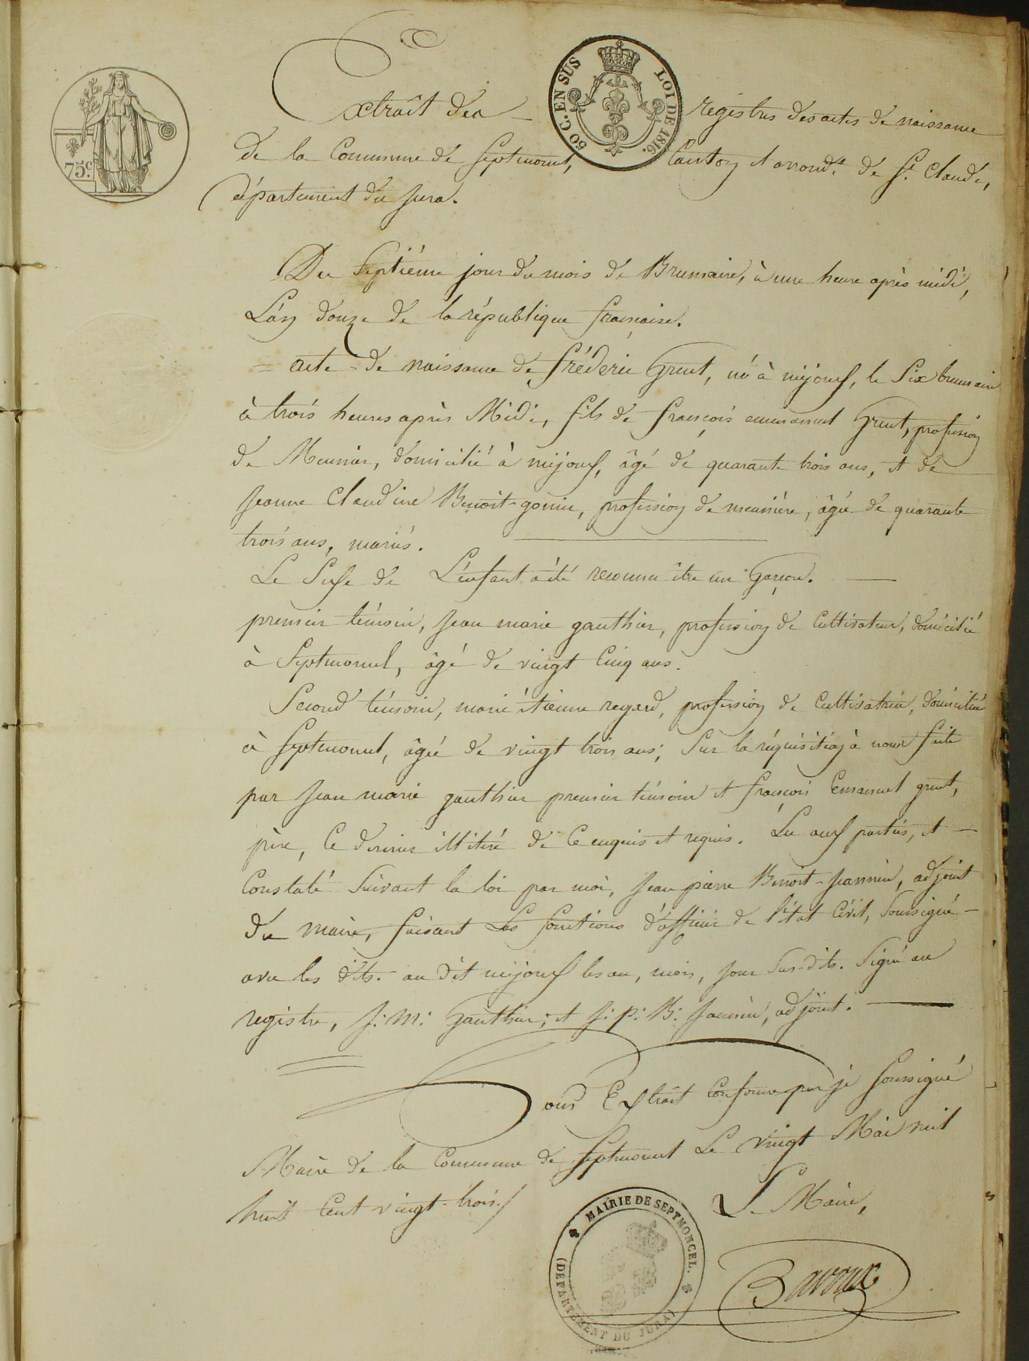 75c.
50 C. EN SUS LOI DE 1816.
Extrait des registres des actes de naissance
de la Commune de Septmoncel, Canton et arrondt. de St. Claude,
département du jura.
Du Septième jour du mois de Brumaire, à une heure après midi,
L'an douze de la république francaise.
= acte de naissance de frédéric Grut, né à mijoux, le Six brumaire
à trois heures après Midi, fils de françois emmanuel Grut, profession
de Meunier, domicilié à mijoux, âgé de quarante trois ans, et de
Jeanne Claudine Benoit-gonin, profession de meunière, âgée de quarante
trois ans, mariés.
Le Sexe de L'enfant a été reconnu être un Garçon.
premier témoin, Jean marie gauthier, profession de Cultivateur, domicilié
à Septmoncel, âgé de vingt Cinq ans.
Second témoin, marie étienne regard, profession de Cultivatrice, domiciliée
à Septmoncel, âgée de vingt trois ans; Sur la réquisition à nous faite
par Jean marie gauthier premier témoin et françois Emanuel grut,
père, Ce dernier illitéré de Ce enquis et requis. Lu aux parties, et
Constaté Suivant la loi par moi, Jean pierre Benoit-Jeannin, adjoint
du maire, faisant Les fonctions d'officier de l'état Civil, Soussigné
avec les dits. au dit mijoux les an, mois, jour Sus-dits. Signé au
registre, J: M: Gauthier; et J: P: B: Jeannin, adjoint.
Pour Extrait Conforme par je Soussigné
Maire de la Commune de Septmoncel Le vingt Mai mil
huit Cent vingt-trois./.
Le Maire,
MAIRIE DE SEPTMONCEL.
(DEPARTEMENT DU JURA)
Bavoux